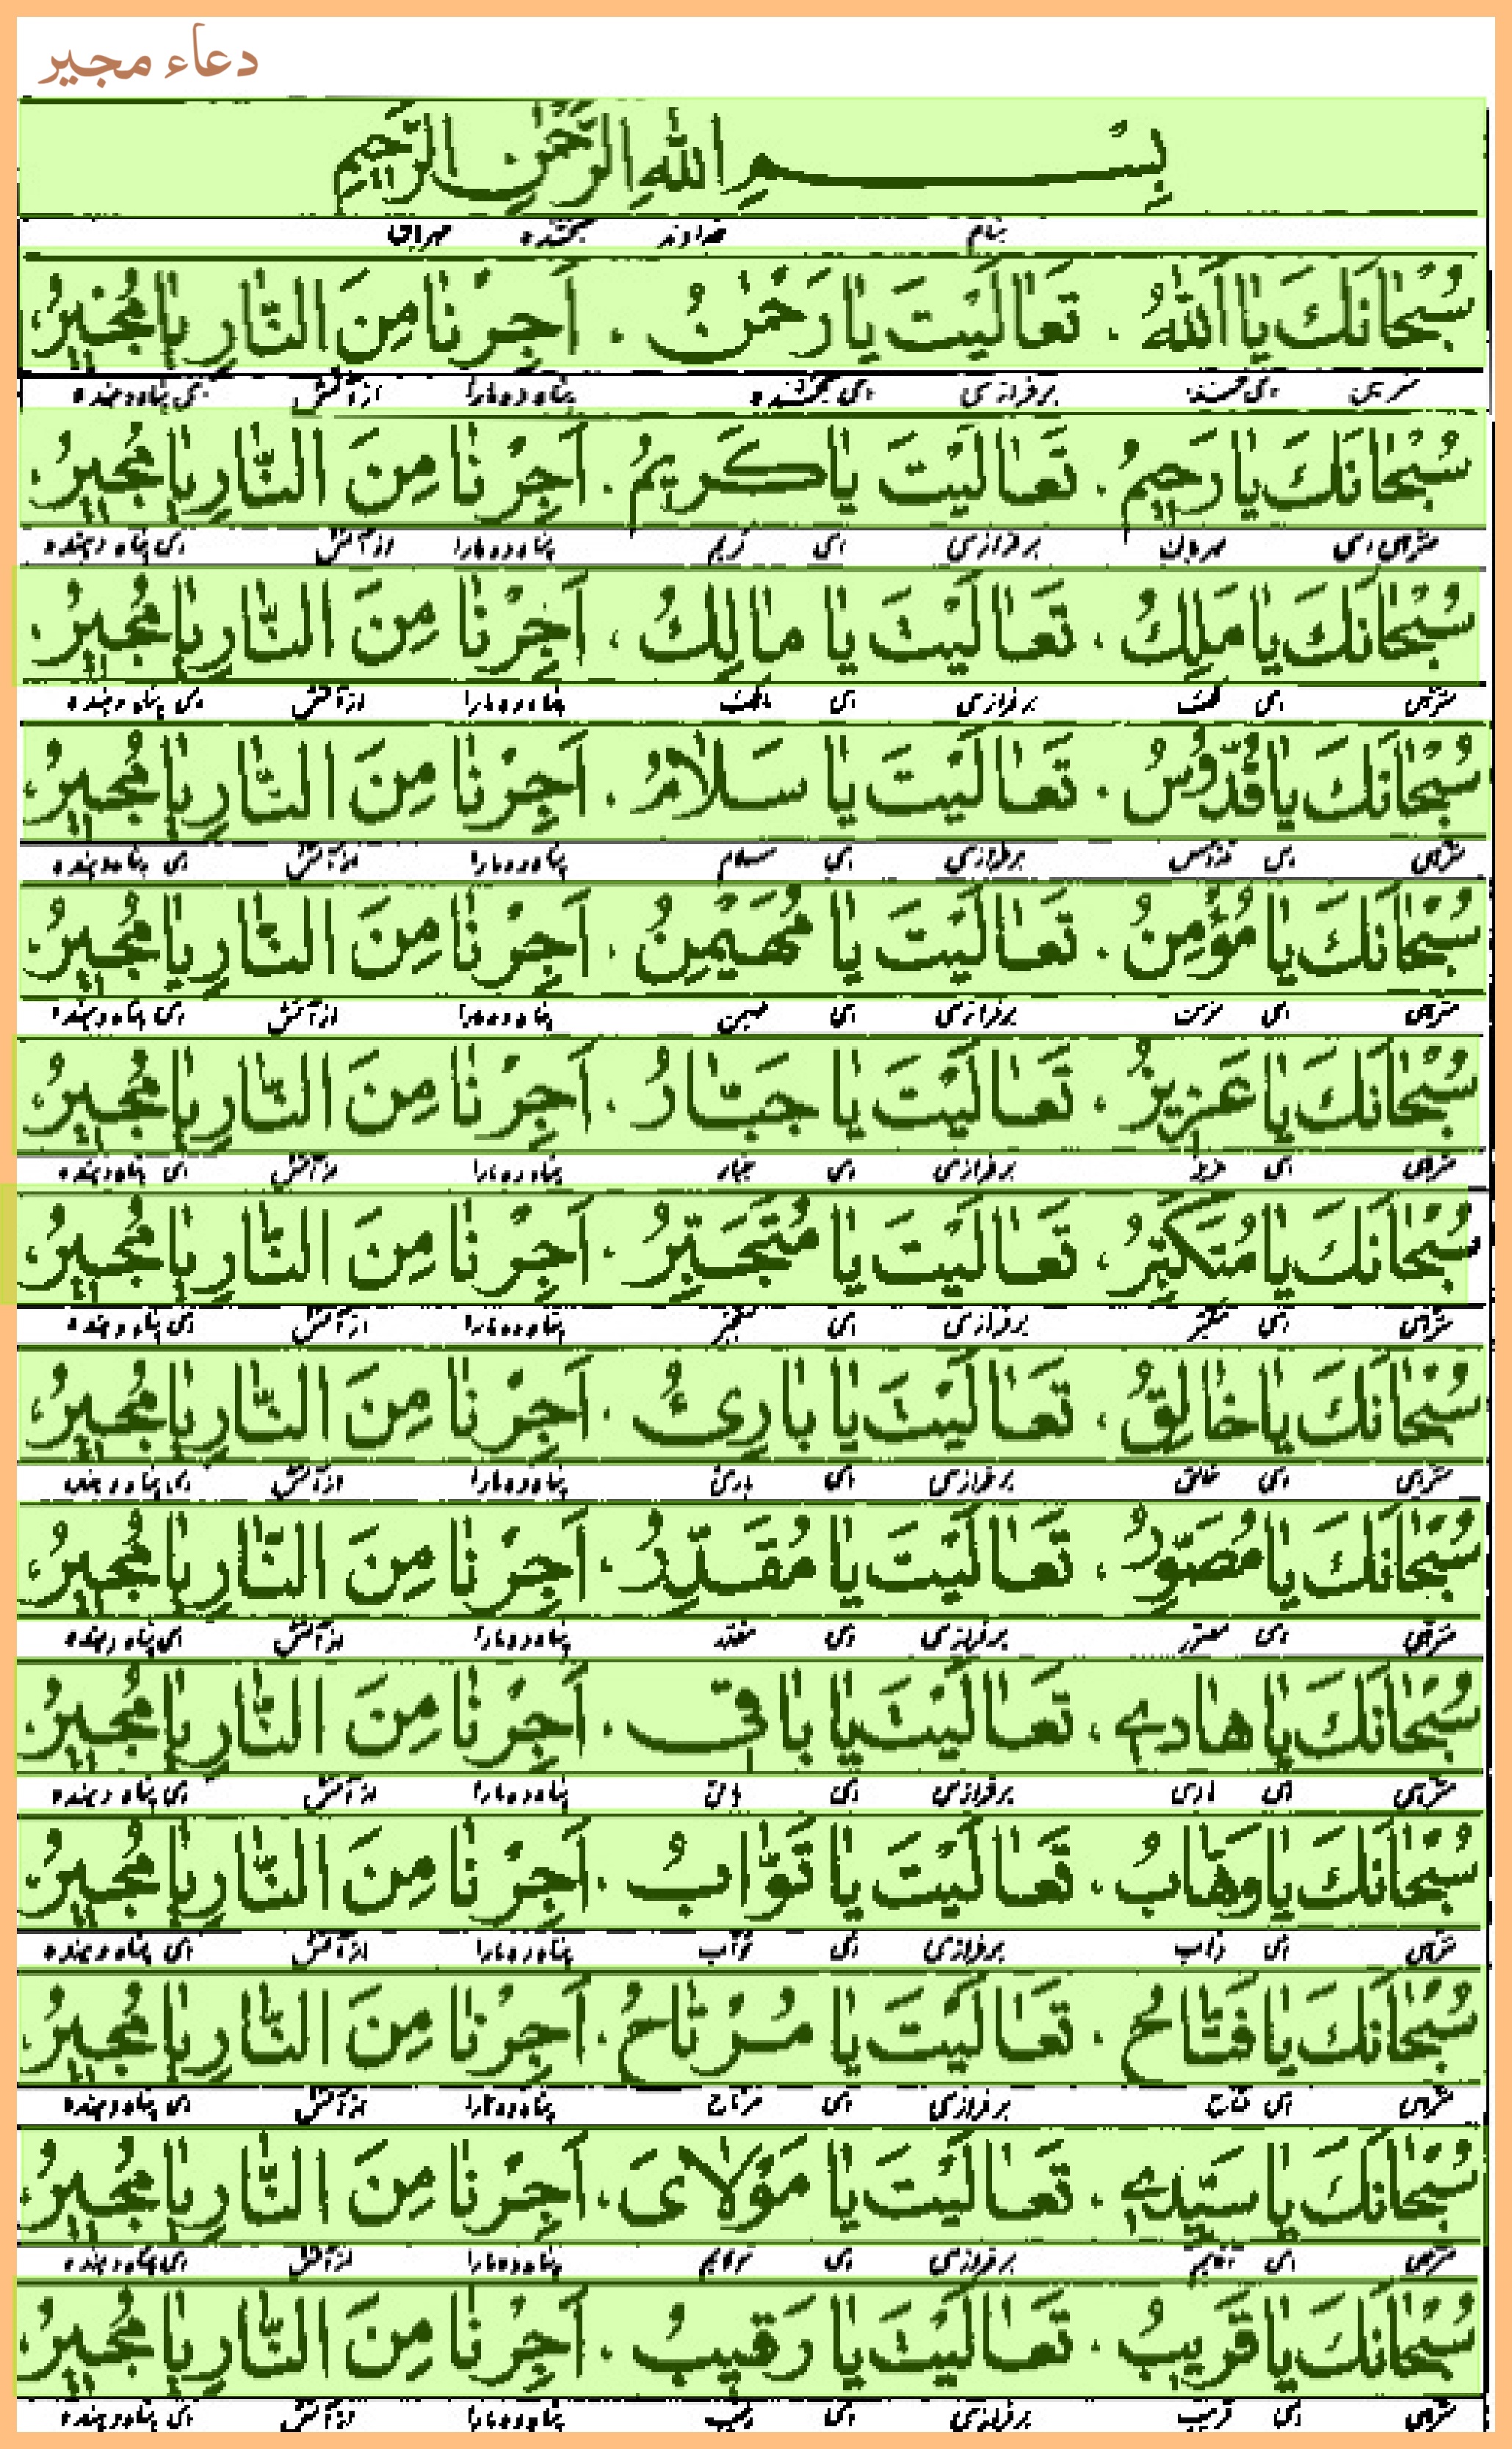 دعاء مجیر
بِسْمِ اللهِ الرَّحْمٰنِ الرَّحیمِ
بنام خداوند بخشنده مهربان
سُبْحانَكَ یا اَللهُ ، تَعالَیْتَ یا رَحْمٰنُ ، اَجِرْنا مِنَ النّارِ یا مُجیرُ ،
برفرازی ای بخشنده پناه ده ما را از آتش ای پناه دهنده
سُبْحانَكَ یا رَحیمُ ، تَعالَیْتَ یا کَریمُ ، اَجِرْنا مِنَ النّارِ یا مُجیرُ ،
منزهی ای مهربان برفرازی ای کریم پناه ده ما را از آتش ای پناه دهنده
سُبْحانَكَ یا مَلِكُ ، تَعالَیْتَ یا مالِكُ ، اَجِرْنا مِنَ النّارِ یا مُجیرُ ،
منزهی ای ملک برفرازی ای مالک پناه ده ما را از آتش ای پناه دهنده
سُبْحانَكَ یا قُدُّوسُ ، تَعالَیْتَ یا سَلامُ ، اَجِرْنا مِنَ النّارِ یا مُجیرُ ،
منزهی ای قدوس برفرازی ای سلام پناه ده ما را از آتش ای پناه دهنده
سُبْحانَكَ یا مُؤْمِنُ ، تَعالَیْتَ یا مُهَیْمِنُ ، اَجِرْنا مِنَ النّارِ یا مُجیرُ ،
منزهی ای مؤمن برفرازی ای مهیمن پناه ده ما را از آتش ای پناه دهنده
سُبْحانَكَ یا عَزیزُ ، تَعالَیْتَ یا جَبّارُ ، اَجِرْنا مِنَ النّارِ یا مُجیرُ ،
منزهی ای عزیز برفرازی ای جبار پناه ده ما را از آتش ای پناه دهنده
سُبْحانَكَ یا مُتَکَبِّرُ ، تَعالَیْتَ یا مُتَجَبِّرُ ، اَجِرْنا مِنَ النّارِ یا مُجیرُ ،
منزهی ای متکبر برفرازی ای متجبر پناه ده ما را از آتش ای پناه دهنده
سُبْحانَكَ یا خالِقُ ، تَعالَیْتَ یا بارِئُ ، اَجِرْنا مِنَ النّارِ یا مُجیرُ ،
منزهی ای خالق برفرازی ای بارئ پناه ده ما را از آتش ای پناه دهنده
سُبْحانَكَ یا مُصَوِّرُ ، تَعالَیْتَ یا مُقَدِّرُ ، اَجِرْنا مِنَ النّارِ یا مُجیرُ ،
منزهی ای مصور برفرازی ای مقدر پناه ده ما را از آتش ای پناه دهنده
سُبْحانَكَ یا هادی ، تَعالَیْتَ یا باقی ، اَجِرْنا مِنَ النّارِ یا مُجیرُ ،
منزهی ای هادی برفرازی ای باقی پناه ده ما را از آتش ای پناه دهنده
سُبْحانَكَ یا وَهّابُ ، تَعالَیْتَ یا تَوّابُ ، اَجِرْنا مِنَ النّارِ یا مُجیرُ ،
منزهی ای وهاب برفرازی ای تواب پناه ده ما را از آتش ای پناه دهنده
سُبْحانَكَ یا فَتّاحُ ، تَعالَیْتَ یا مُرْتاحُ ، اَجِرْنا مِنَ النّارِ یا مُجیرُ ،
منزهی ای فتاح برفرازی ای مرتاح پناه ده ما را از آتش ای پناه دهنده
سُبْحانَكَ یا سَیِّدی ، تَعالَیْتَ یا مَوْلایَ ، اَجِرْنا مِنَ النّارِ یا مُجیرُ ،
منزهی ای آقایم برفرازی ای مولایم پناه ده ما را از آتش ای پناه دهنده
سُبْحانَكَ یا قَریبُ ، تَعالَیْتَ یا رَقیبُ ، اَجِرْنا مِنَ النّارِ یا مُجیرُ ،
منزهی ای قریب برفرازی ای رقیب پناه ده ما را از آتش ای پناه دهنده